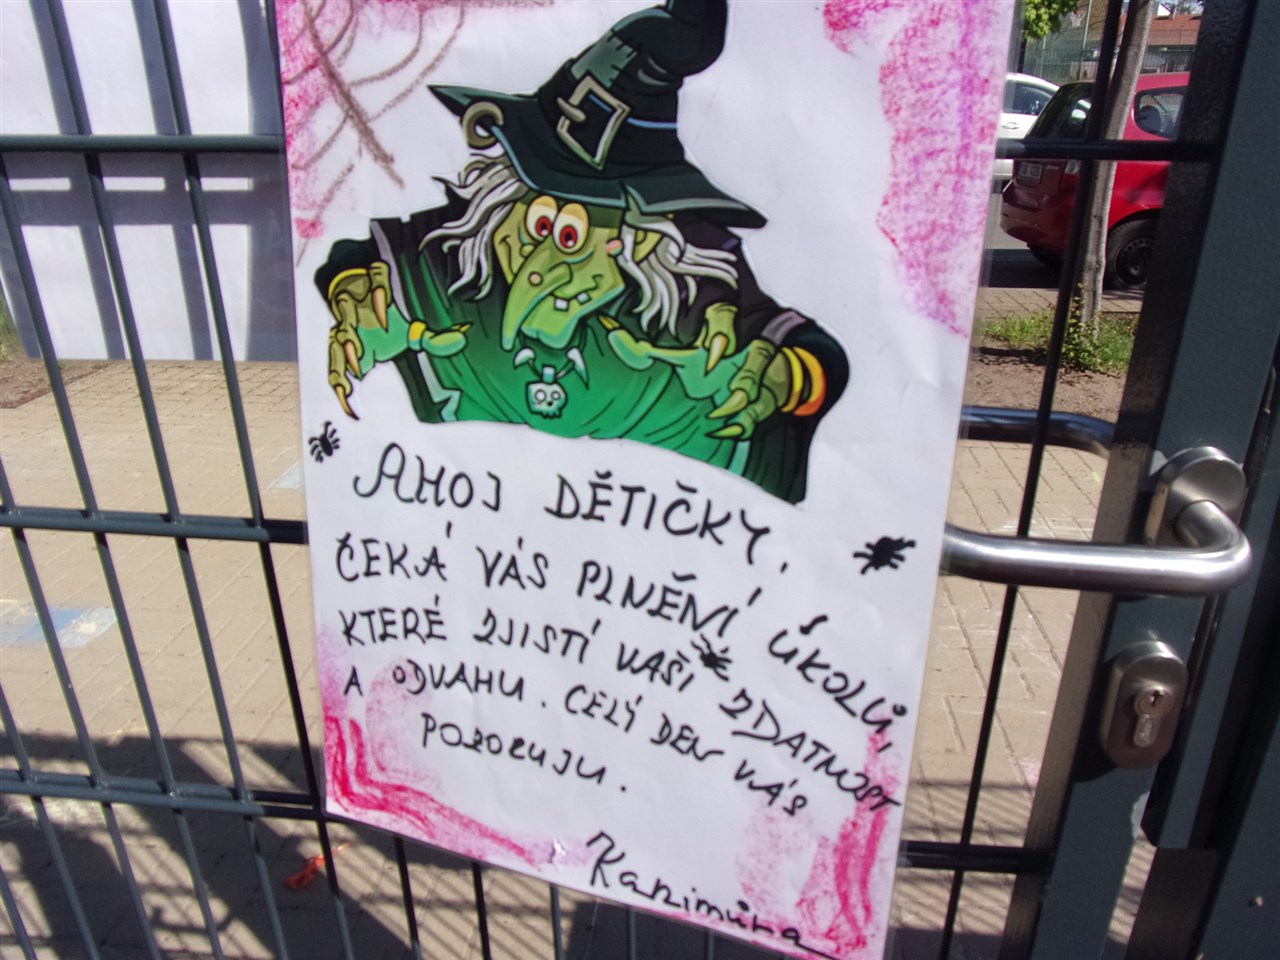 AHOJ DĚTIČKY,
ČEKÁ VÁS PLNĚNÍ ÚKOLŮ,
KTERÉ ZJISTÍ VAŠI ZDATNOST
A ODVAHU. CELÝ DEN VÁS
POZORUJU.
Kanimůra